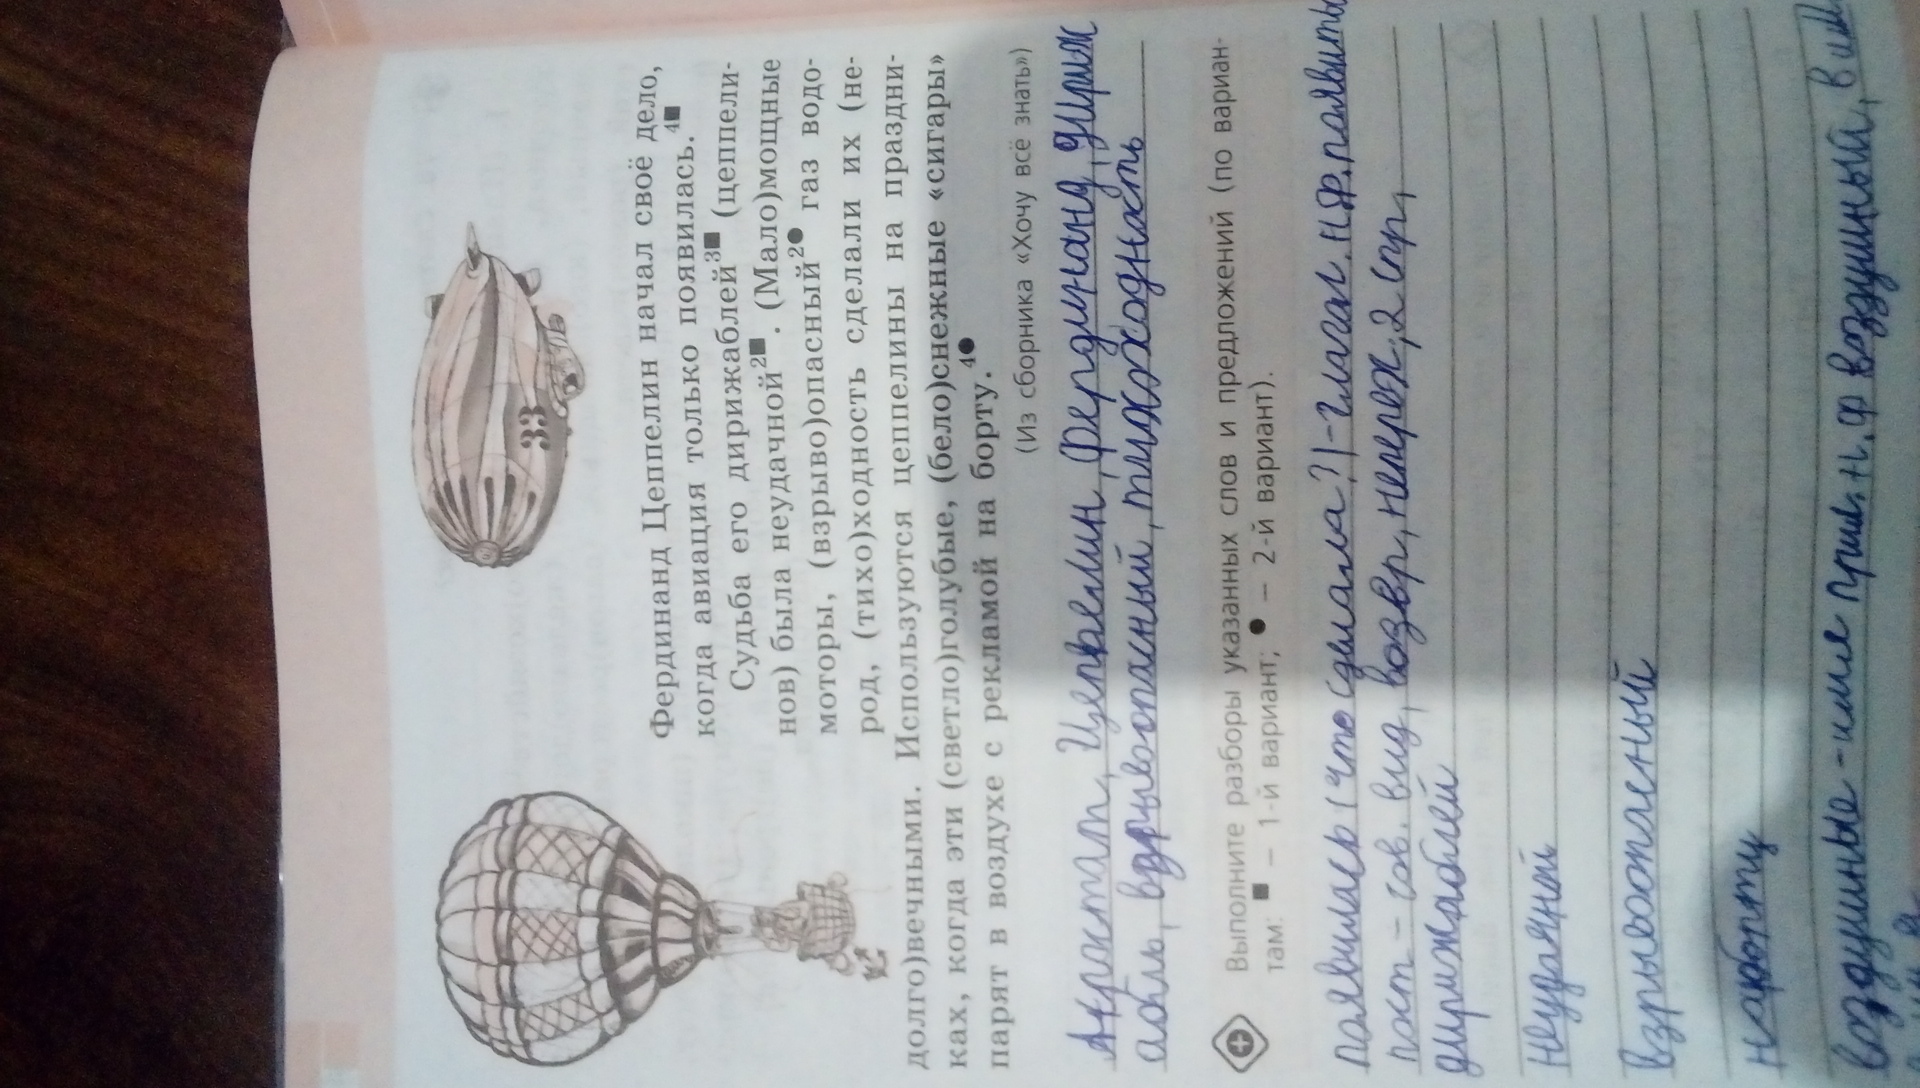 33
Фердинанд Цеппелин начал своё дело,
когда авиация только появилась.4■
Судьба его дирижаблей3■ (цеппели-
нов) была неудачной2■. (Мало)мощные
моторы, (взрыво)опасный2● газ водо-
род, (тихо)ходность сделали их (не-
долго)вечными. Используются цеппелины на праздни-
ках, когда эти (светло)голубые, (бело)снежные «сигары»
парят в воздухе с рекламой на борту.4●
(Из сборника «Хочу всё знать»)
Аэростат, Цеппелин, Фердинанд, дириж
абль, взрывоопасный, тихоходность
Выполните разборы указанных слов и предложений (по вариан-
там: ■ – 1-й вариант; ● – 2-й вариант).
появилась (что сделала?)-глагол. н.ф. появить
пост - сов. вид, возвр, неперех, 2 спр,
дирижаблей
неудачной
взрывоопасный
на борту
воздушные - имя прил. н.ф воздушный, в им.